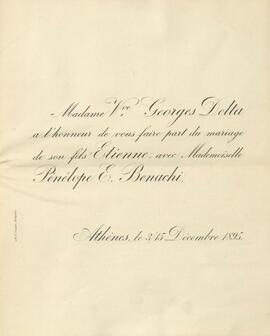 Madame Vve Georges Delta
a l'honneur de vous faire part du mariage
de son fils Etienne, avec Mademoiselle
Pénélope E. Benachi.
Athènes, le 3/15 Décembre 1895.